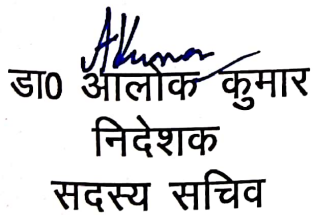 AKumar
डा0 आलोक कुमार
निदेशक
सदस्य सचिव